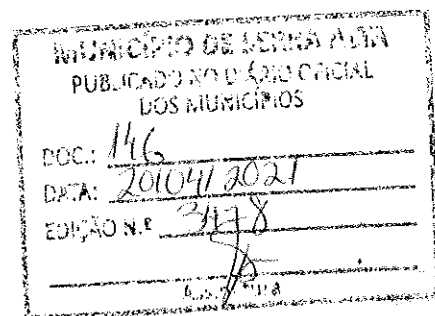 MUNICÍPIO DE SERRA ALTA
PUBLICADO NO DIÁRIO OFICIAL
DOS MUNICÍPIOS
DOC.: 146
DATA: 20/04/2021
EDIÇÃO N.º 3478
Assinatura